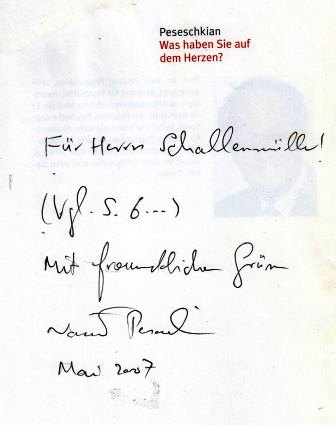 Peseschkian
Was haben Sie auf
dem Herzen?
Für Herrn Schallenmüller!
(Vgl. S. 6...)
Mit freundlichen Grüßen
Mai 2007